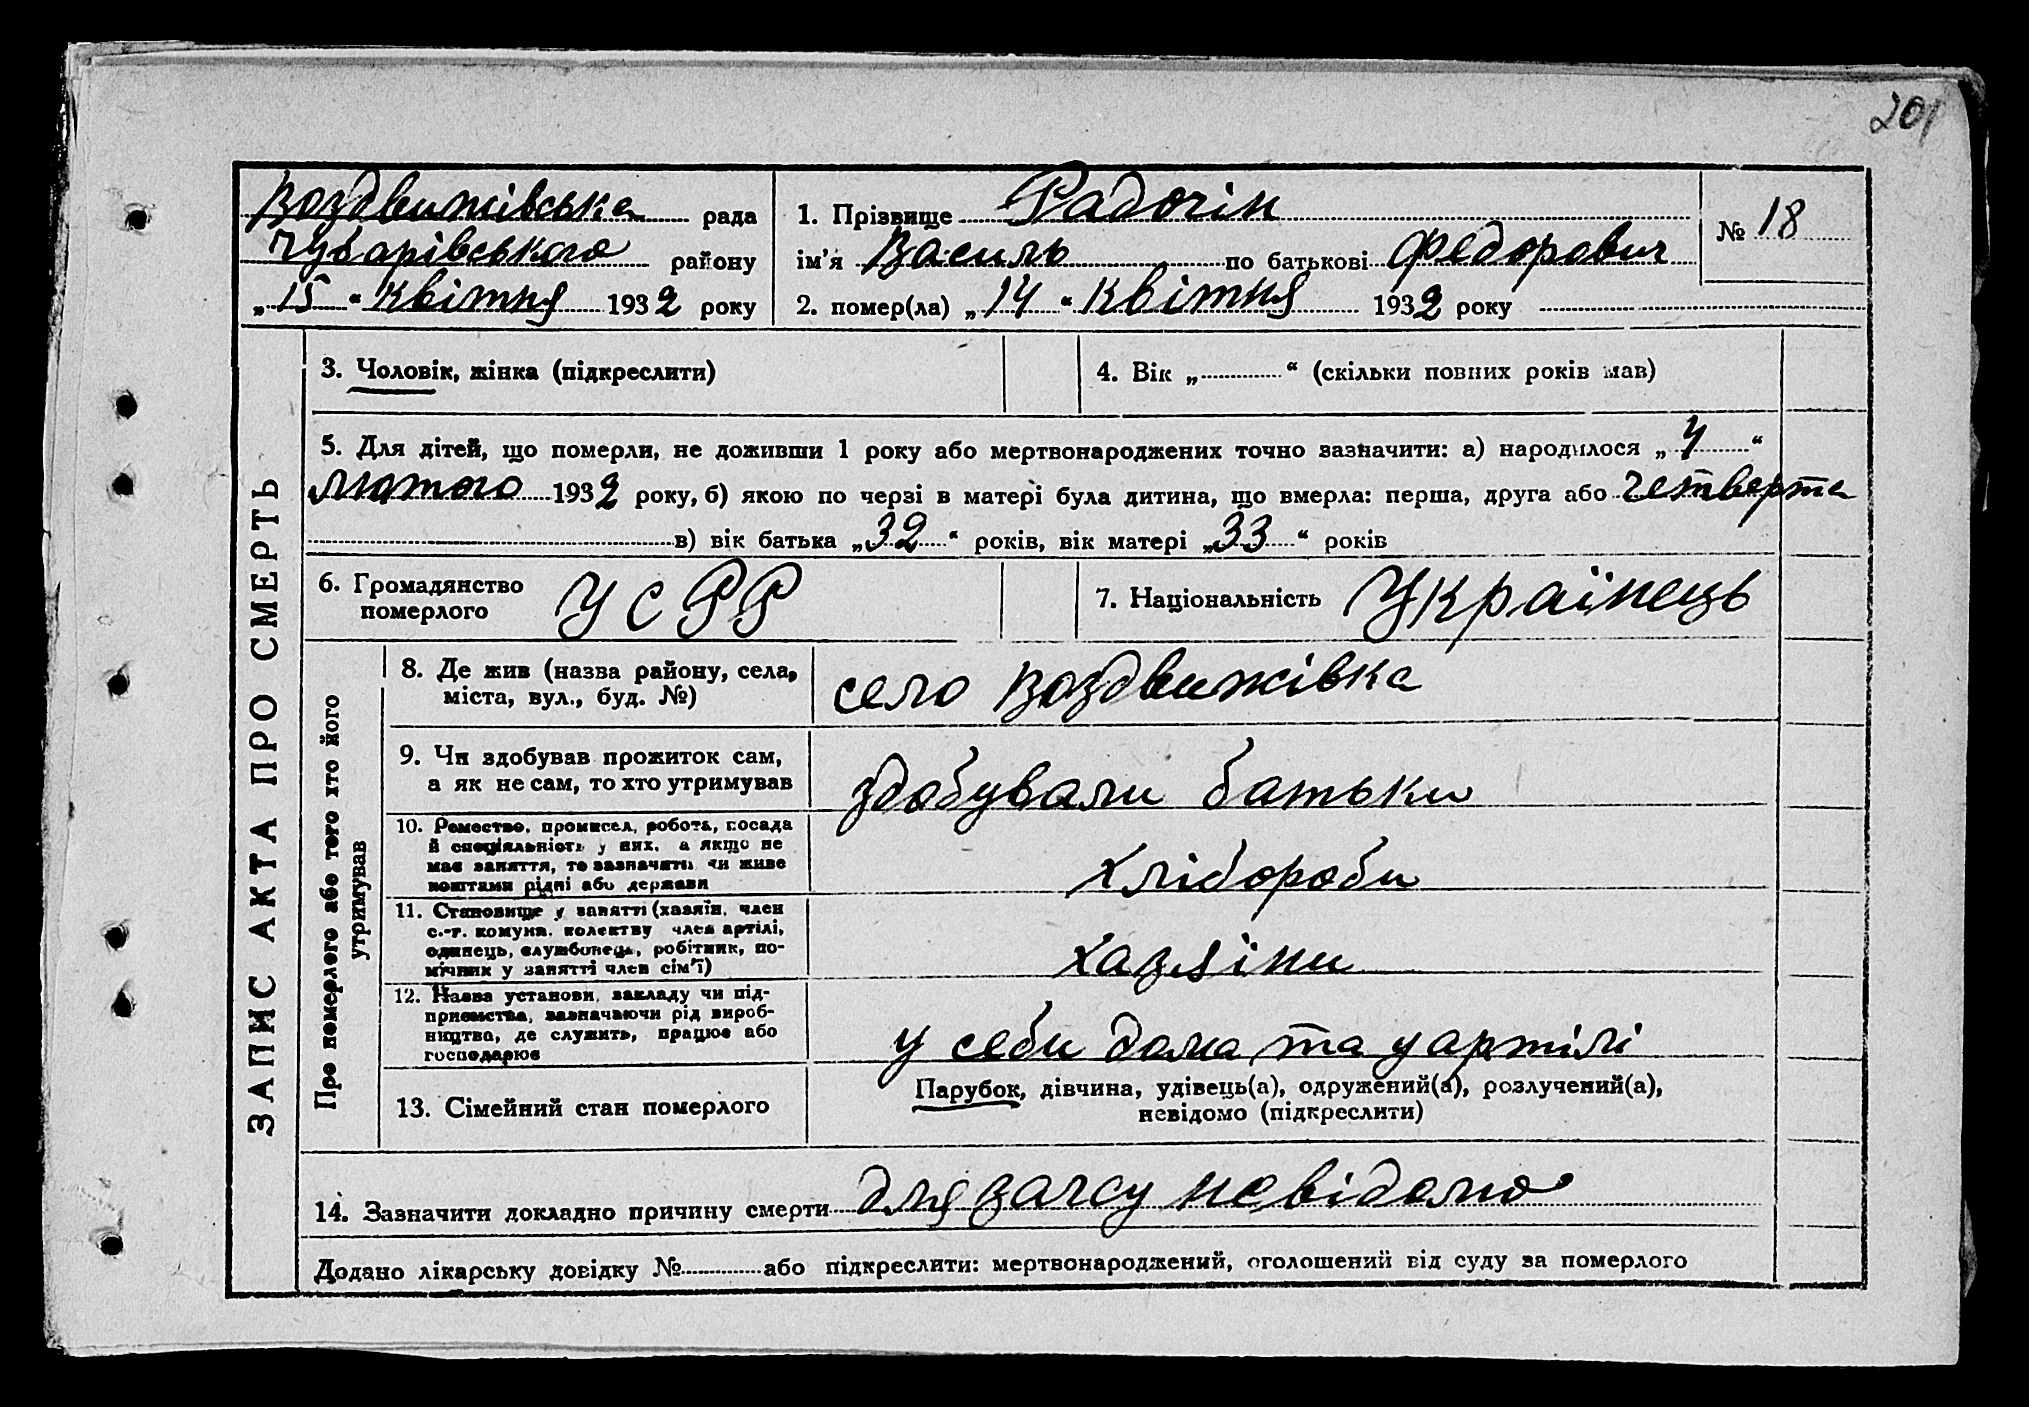 201
Воздвижівська рада
Чубарівського району
„15“ квітня 1932 року
1. Прізвище Радочін
№ 18
ім’я Василь по батькові Федорович
2. помер(ла) „14“ квітня 1932 року
ЗАПИС АКТА ПРО СМЕРТЬ
3. Чоловік, жінка (підкреслити)
4. Вік „ “ (скільки повних років мав)
5. Для дітей, що померли, не доживши 1 року або мертвонароджених точно зазначити: а) народилося „4“
лютого 1932 року, б) якою по черзі в матері була дитина, що вмерла: перша, друга або четверта
в) вік батька „32“ років, вік матері „33“ років
6. Громадянство
померлого
УСРР
7. Національність Украінець
Про померлого або того хто його
утримував
8. Де жив (назва району, села,
міста, вул., буд. №)
село Воздвижівка
9. Чи здобував прожиток сам,
а як не сам, то хто утримував
здобували батьки
10. Ремество, промисел, робота, посада
й спеціяльність у них, а якщо не
має заняття, то зазначити чи живе
коштами рідні або держави
хлібороби
11. Становище у занятті (хазяїн, член
с.-г. комуни, колективу член артілі,
одинець, службовець, робітник, по-
мічник у занятті член сім’ї)
хазяіни
12. Назва установи, закладу чи під-
приємства, зазначаючи рід вироб-
ництва, де служить, працює або
господарює
у себи дома та у артілі
13. Сімейний стан померлого
Парубок, дівчина, удівець(а), одружений(а), розлучений(а),
невідомо (підкреслити)
14. Зазначити докладно причину смерти для загсу невідомо
Додано лікарську довідку № або підкреслити: мертвонароджений, оголошений від суду за померлого